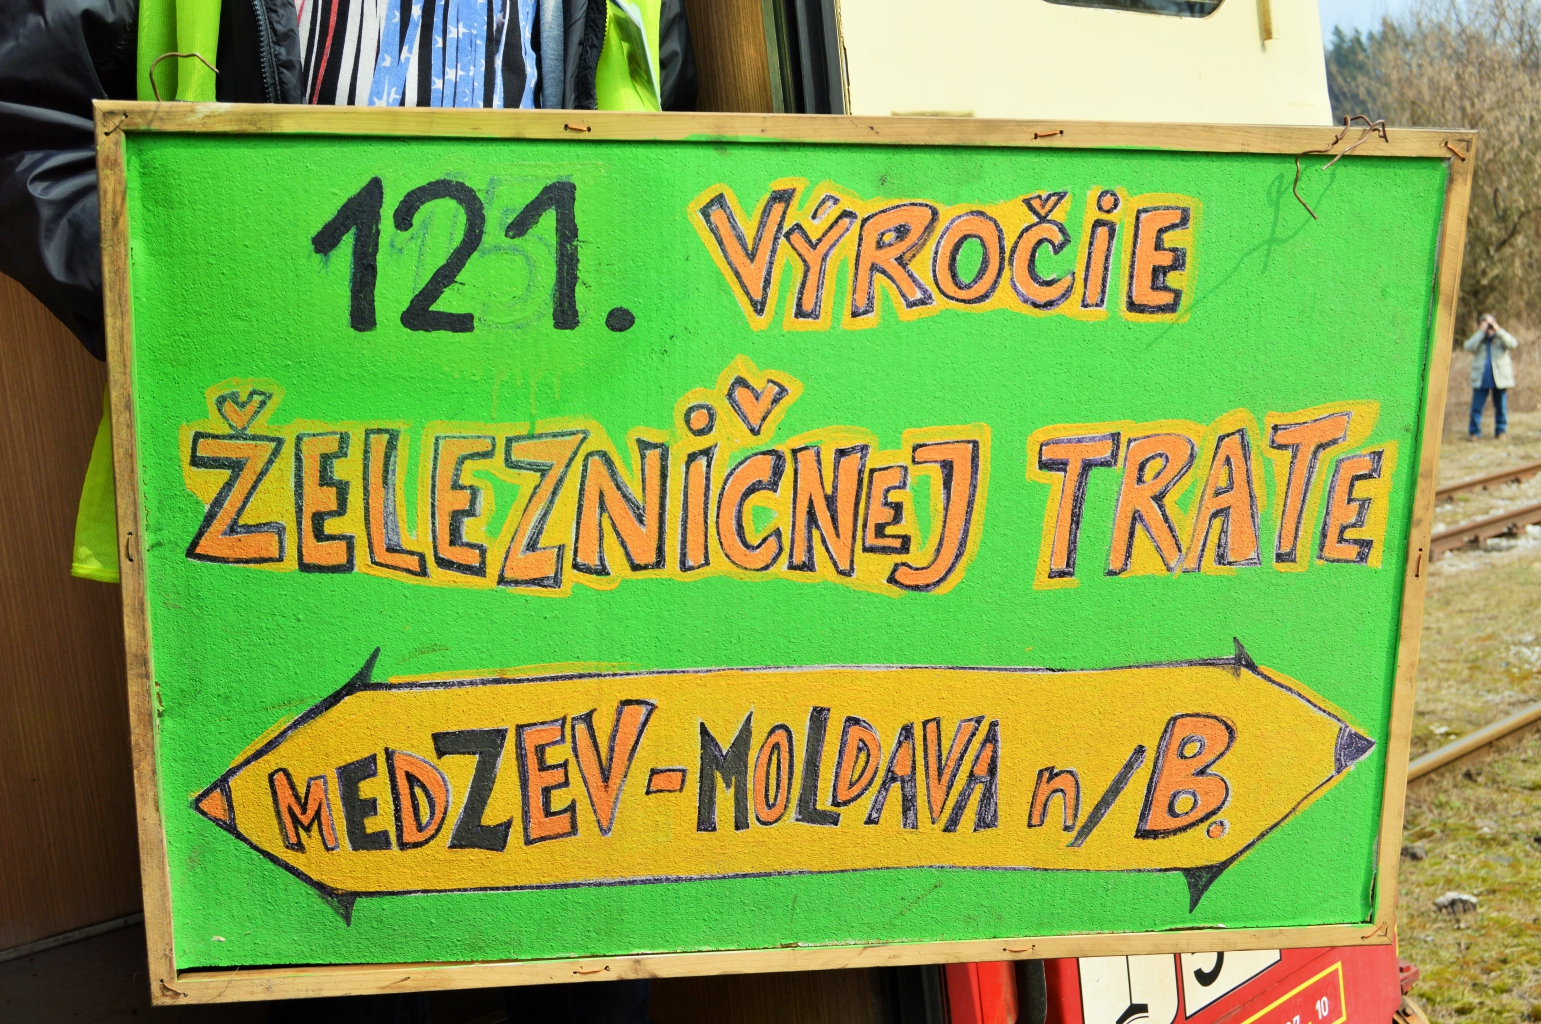 121. VÝROČIE
ŽELEZNIČNEJ TRATE
MEDZEV-MOLDAVA n/B.
10